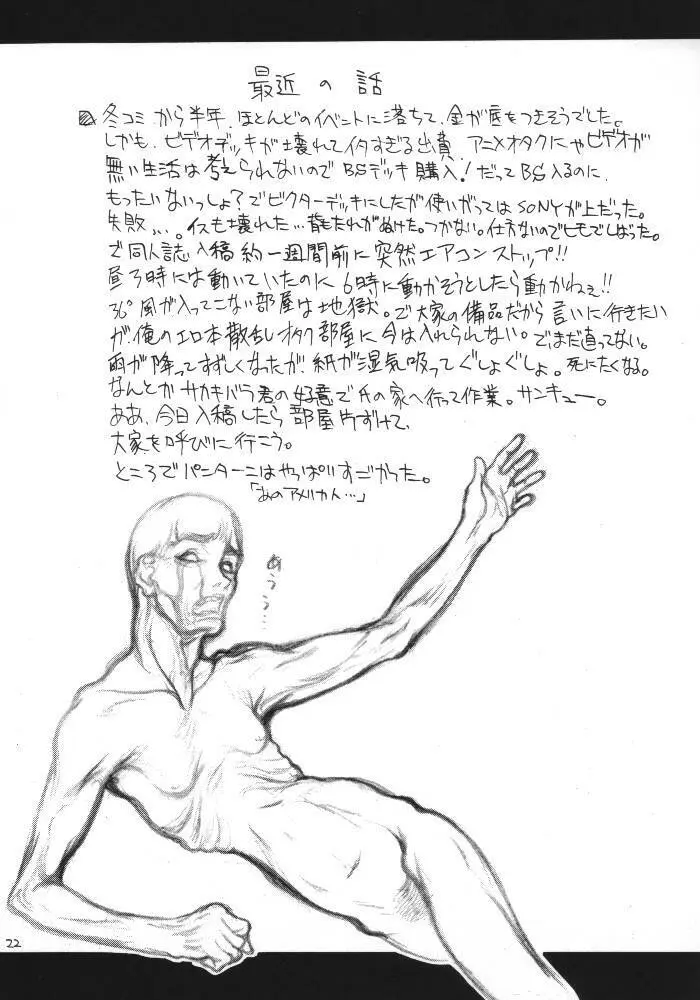 最近の話
冬コミから半年、ほとんどのイベントに落ちて、金が底をつきそうでした。
しかも、ビデオデッキが壊れてイタすぎる出費 アニメオタクにゃビデオが
無い生活は考えられないのでBSデッキ購入!だってBS入るのに、
もったいないっしょ?でビクターデッキにしたが使いがってはSONYが上だった。
失敗、、、。イスも壊れた…背もたれがぬけた。つかない。仕方ないのでヒモでしばった。
で同人誌入稿約一週間前に突然エアコンストップ!!
昼3時には動いていたのに6時に動かそうとしたら動かねぇ!!
36°風が入ってこない部屋は地獄。で大家の備品だから言いに行きたい
が、俺のエロ本散乱オタク部屋に今は入れられない。でまだ直ってない。
雨が降ってすずしくなったが、紙が湿気吸ってぐしょぐしょ。死にたくなる。
なんとかサカキバラ君の好意で氏の家へ行って作業。サンキュー。
ああ、今日入稿したら部屋片ずけて、
大家を呼びに行こう。
ところでパンターニはやっぱりすごかった。
「あのアメリカん…」
あうう…
22